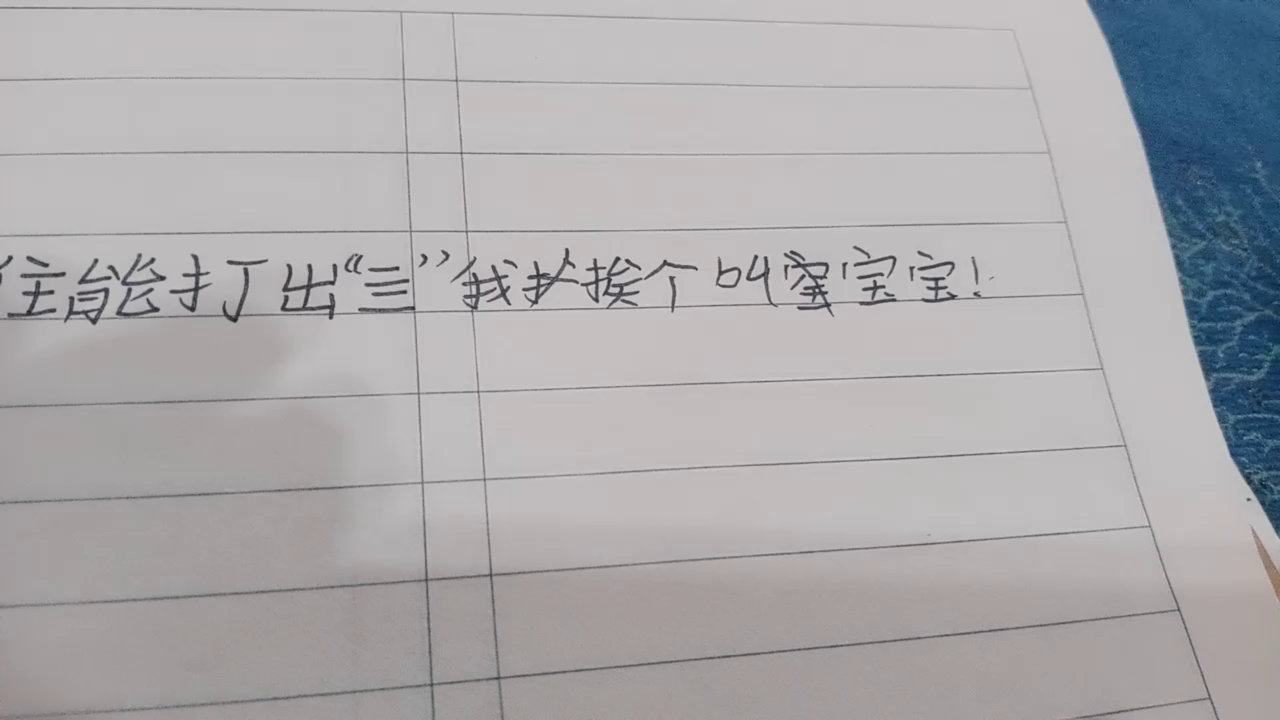 能打出“三”我挨个叫蜜宝宝!